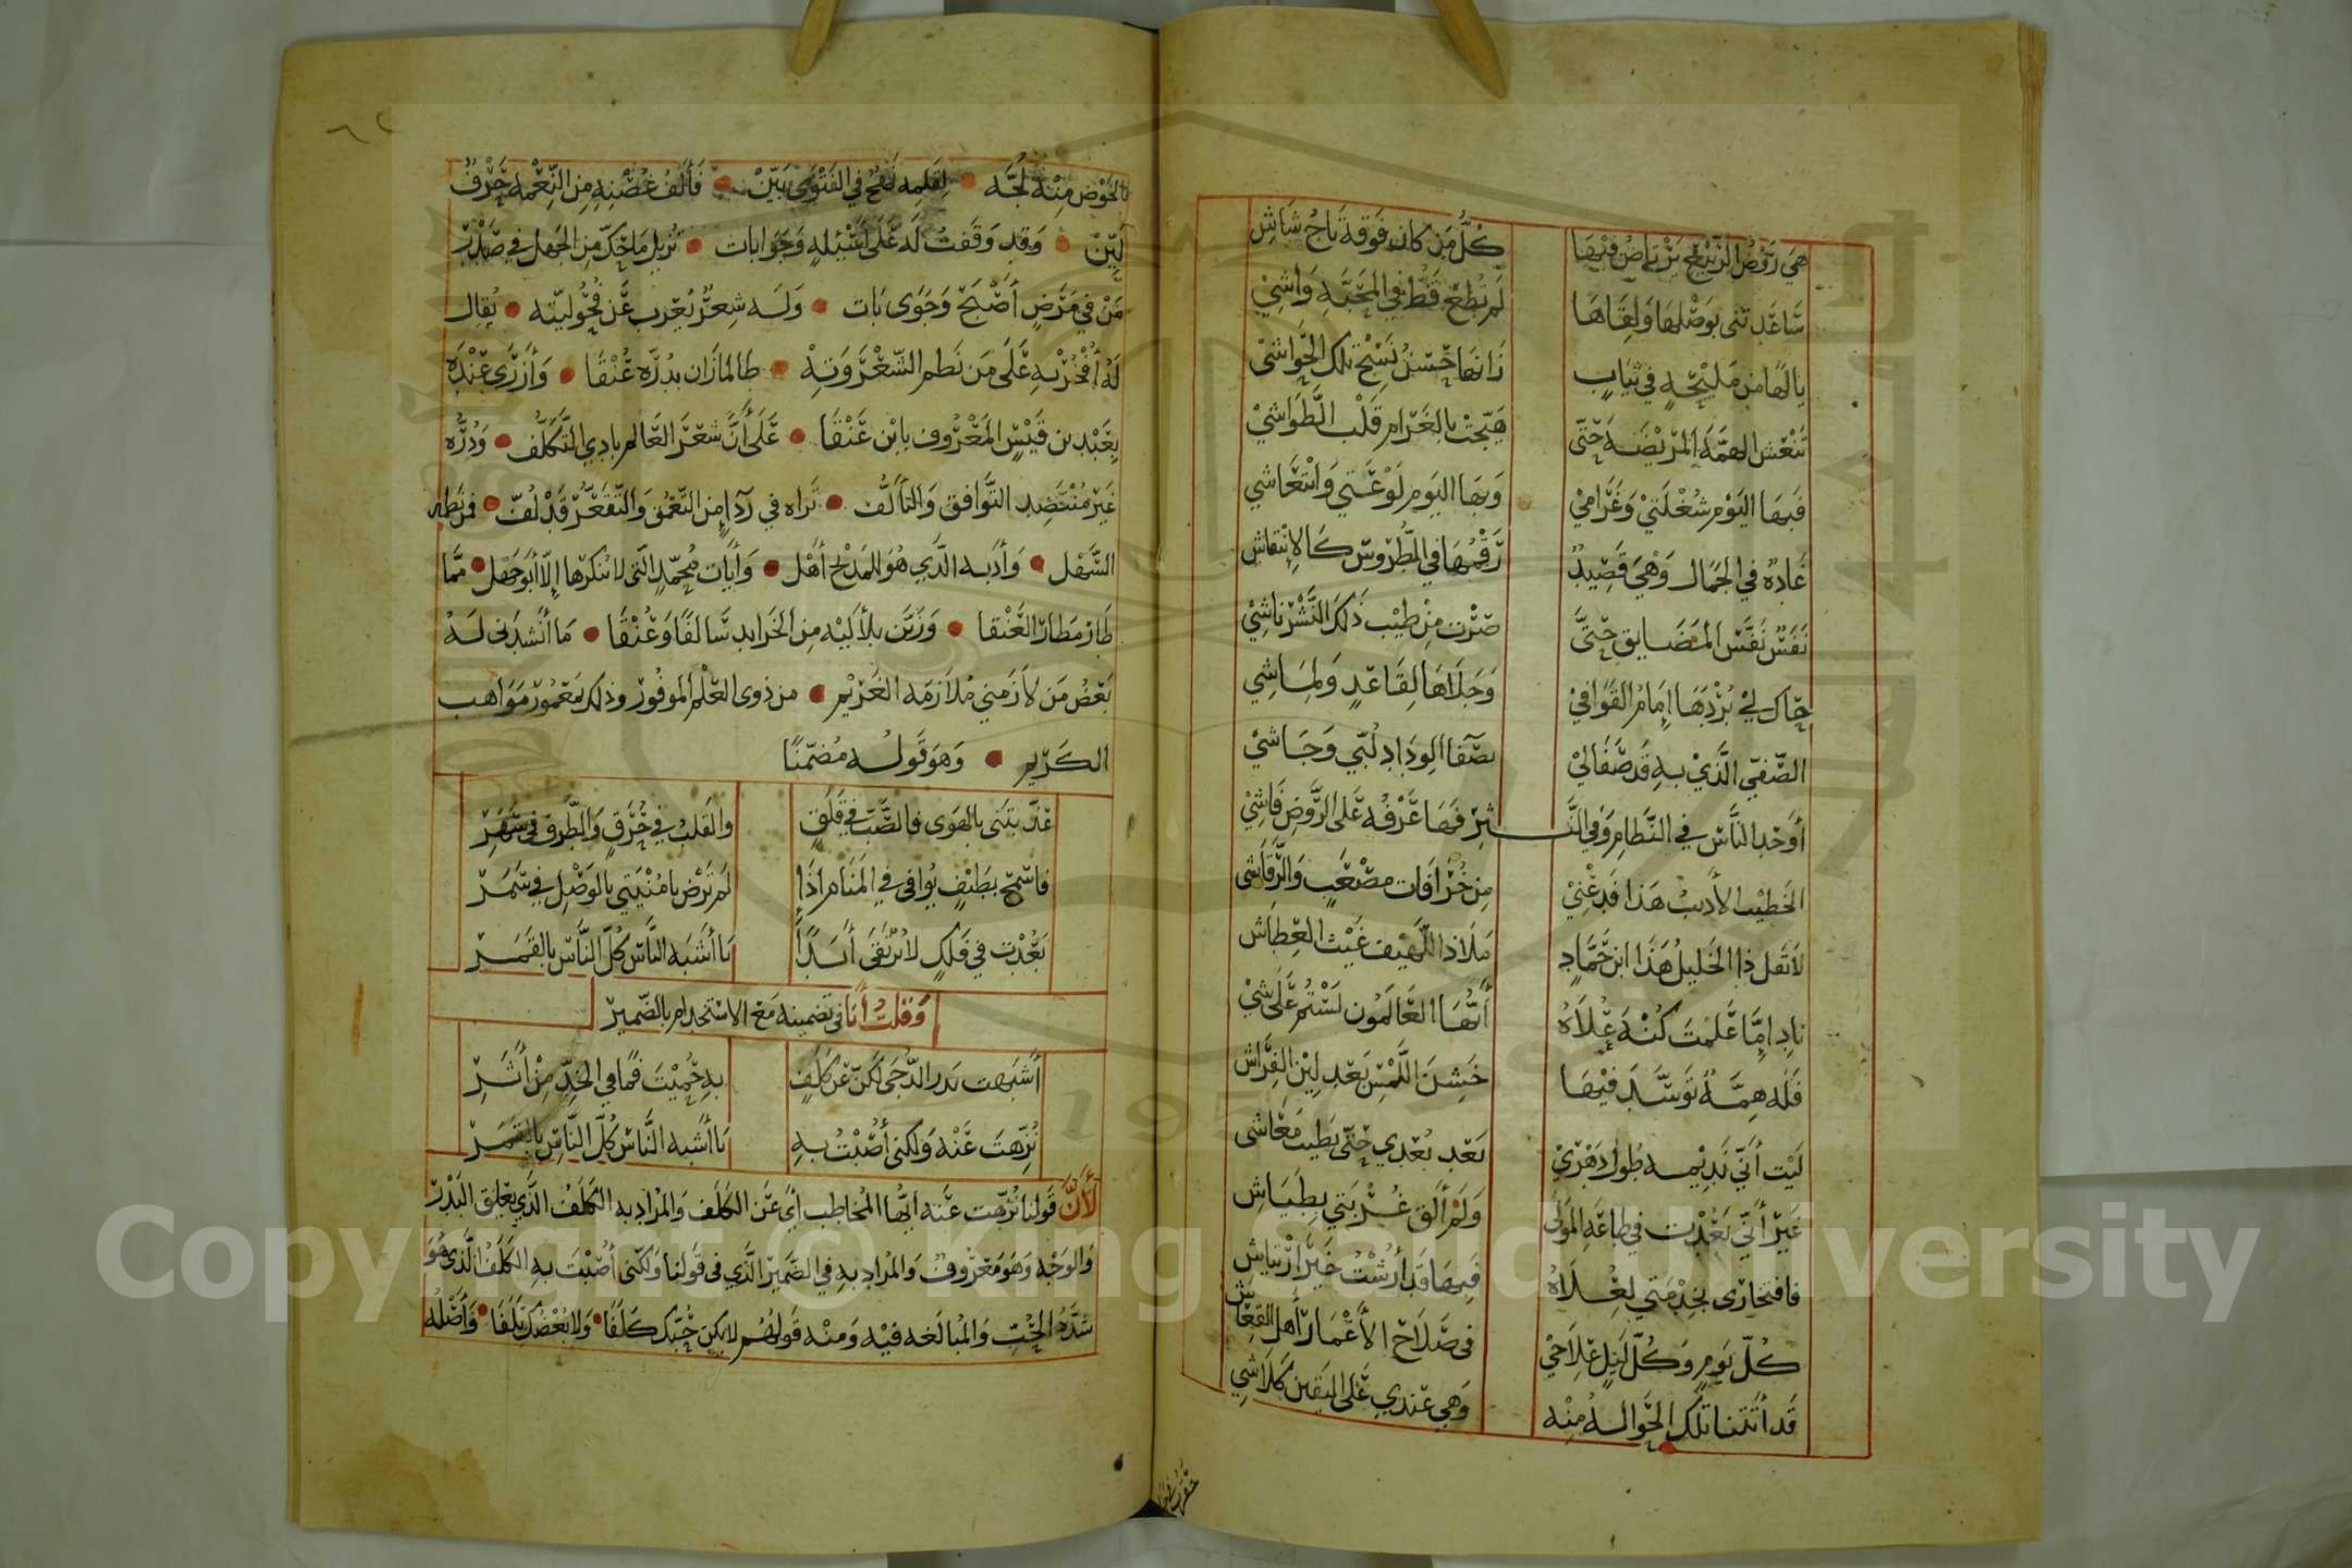 هِيَ رَوْضُ الرَّبِيْعِ يَرْتَاضُ فِيْهَا كُلُّ مَن كان فَوقَهُ تَاجُ شَاشِ
سَاعَدتنى بوَصْلِهَا وَلِقَاهَا لَم تُطِعْ قَطُّ فِي المَحَبَّةِ وَاشِيْ
يا لَهَا مِن مَلِيْحَةٍ فِي ثِيَابٍ زَانهَا حُسْنُ نَسْجِ تلكَ الحَوَاشِيْ
تنْعش الهِمَّةَ المَرِيْضَةَ حَتّى هَيَّجَتْ بالغَرَامِ قَلْبَ الطَّوَاشِيْ
فَبِهَا اليَوْمَ شُغْلَتِيْ وَغَرَامِيْ وَبِهَا اليَوم لَوْعَتِي وَانْتِعَاشي
غَادَةٌ في الجَمَالِ وَهْيَ قَصِيْدٌ رَقْمُهَا في الطُّرُوس كَالإنْتِقاش
نَفَّسَتْ نَفَسَ المَضَايق حَتَّى صِرْت مِنْ طِيْب ذَلكَ النَّشْر نَاشِيْ
حَاكَ لِيْ بُرْدَهَا إمَامُ القَوَافِيْ وَجَلَاهَا لِقَاعَدٍ وَلِمَاشِي
الصَّفِيّ الَّذِيْ بِهِ قَد صَفَا لِيْ بصَفا الوِدَادِ لُبِّي وَجَاشيْ
أوحَد النَّاسِ في النّظَامِ وَفي النَّـ ـثِرْ فَهَا عَرْفُهُ عَلى الرَّوْضِ فَاشِيْ
الخَطِيْب الأَديبُ هَذَا فَدَعْنِيْ مِن خُرَافَات مصْعَبٍ وَالرَّقَاشى
لاَ تَقل ذا الخَليلُ هَذَا ابن حَمَّادٍ مَلَاذ اللَّهِيف غَيْث العِطَاش
نادِ إمَّا عَلمْتَ كُنْهَ عُلاَهُ أيُّهَا العَالَمُون لَسْتُم عَلَى شَيْ
فَلَهُ هِمَّةٌ تَوَسَّدَ فيْهَا خَشِنَ اللَّمْسِ بَعْد لِيْنِ الفِرَاش
لَيْتَ أنّي نَدِيْمه طُولَ دَهْرِيْ بَعْد بُعْدِي حَتَّى يَطِيبَ مَعَاشى
غَيْرَ أنّي بَعُدْت في طَاعَةِ المَوْلَى وَلَمْ ألقَ غُرْبَتي بِطِيَاشِ
فافتخارى بخِدْمَتي لِعُلَاهُ فِيهَا قَد أرشْتُ خَيْرَ ارْتيَاشِ
كُلّ يَومٍ وَكُلّ لَيْلٍ عِلاَجِيْ فى صَلَاح الأَعْمَارِ أهل القعَاش
قَد أتَتْنا تلْكَ الحَوَالَةُ مِنْه وَهِي عِندي عَلى اليَقين كَلَاشِي
بالخَوْض مِنْهُ لُجَّه • لِقَلمِهِ نَفْحٌ في الفَتْوَى بَيِّنْ • فَألفُ غُصْنِهِ مِن النِّعْمَة حَرْفٌ
لَيِّنْ • وَقد وَقَفتُ لَهُ عَلَى أَسْئِلةٍ وَجَوَابات • تُزِيل مَا حَكَّ مِن الجَهل في صَدْر
مَنْ في مَرَضٍ أَصْبَحَ وَجَوَى بَات • وَلَه شِعرٌ يُعْرب عَن فُحُوليّته • يُقال
لَهُ أُفْخُرْ بِهِ عَلَى مَن نَظم الشّعْرَ وَتِهْ • طَالما زَان بدُرِّه عُنْقَا • وَأزرَى عِنْدَهُ
بِعَبْد بن قَيْسٍ المَعْرُوف بابْن عَنْقَا • عَلَى أنَّ شعْرَ العَالم بادِي التَّكَلُّف • وَدُرَّه
غَيْر مُنْتَضِد التَّوَافق وَالتَّأَلُّف • تَراه في رِدَاءٍ مِن التَّعَمُّق وَالتَّقَعُّر قَدْ لُفّ • فمن نَظمه
السَّهْل • وَأدَبه الَّذِي هُوَ لِلمَدْحِ أَهْل • وَأبْيَات مُحَمَّدٍ الّتى لا يُنْكرهَا إلّا أبُو جَهْل • مِمَّا
طَارَ مَطَارَ العَنْقا • وَزَيَّن بلَآلَيْهِ مِن الخَرايد سَالفًا وَعُنْقًا • مَا أنْشَدَنى لَهُ
بَعْضُ مَن لَازَمَنِي مُلاَزمَةَ الغَرِيْم • مِن ذوى العِلْم المَوفُوْر وذلك مَعْمُورُ مَوَاهب
الكَرِيم • وَهوَ قَولُه مُضَمِّنًا
عَذَّبتَنى بالهَوَى فالصَّبّ في قَلَقٍ والقَلبُ في حُرَقٍ وَالطَّرف في سَهَرِ
فاسْمَحْ بطَيْفٍ يُوَافى في المَنَامِ إذَا لَم تَرْضَ يا مُنْيَتِي بالوَصْلِ في سَمَر
بَعُدْت في فَلَكٍ لا يُرْتَقَى أَبَدًا يَا أَشْبَه النَّاسِ كُلِّ النَّاسِ بالقَمَـر
وَقلتُ أنَا فى تَضمينه مَعَ الاستخدام بالضّميْر
أشْبَهت بَدر الدُّجَى لكنَّ عَن كَلَفٍ بهِ حُمِيْتَ فَمَا في الخَدّ مِنْ أثَـرِ
نُزِّهتَ عَنْه وَلكنى أُصْبْتُ بِهِ يَا أَشْبه النَّاسِ كُلِّ النَّاسِ بالقَمَـر
لأَنَّ قَولنا نُزِّهت عَنْه ايُّها المُخاطب أىْ عَن الكَلَف وَالمُرَاد به الكَلَفُ الَّذي يعْلق البَدْرَ
وَالوَجْهَ وَهوَ مَعْرُوفٌ وَالمُرَاد بهِ في الضَّمِيْر الَّذي في قَولنَا وَلكنّى أُصْبْتُ بهِ الكَلَفُ الَّذى هُوَ
شدَّةُ الحُبّ وَالمُبالغه فيْهِ وَمنْه قَولهُم لا يَكن حُبّكَ كَلَفًا • وَلا بُغْضُكَ تَلَفًا • وَأَصْلُه